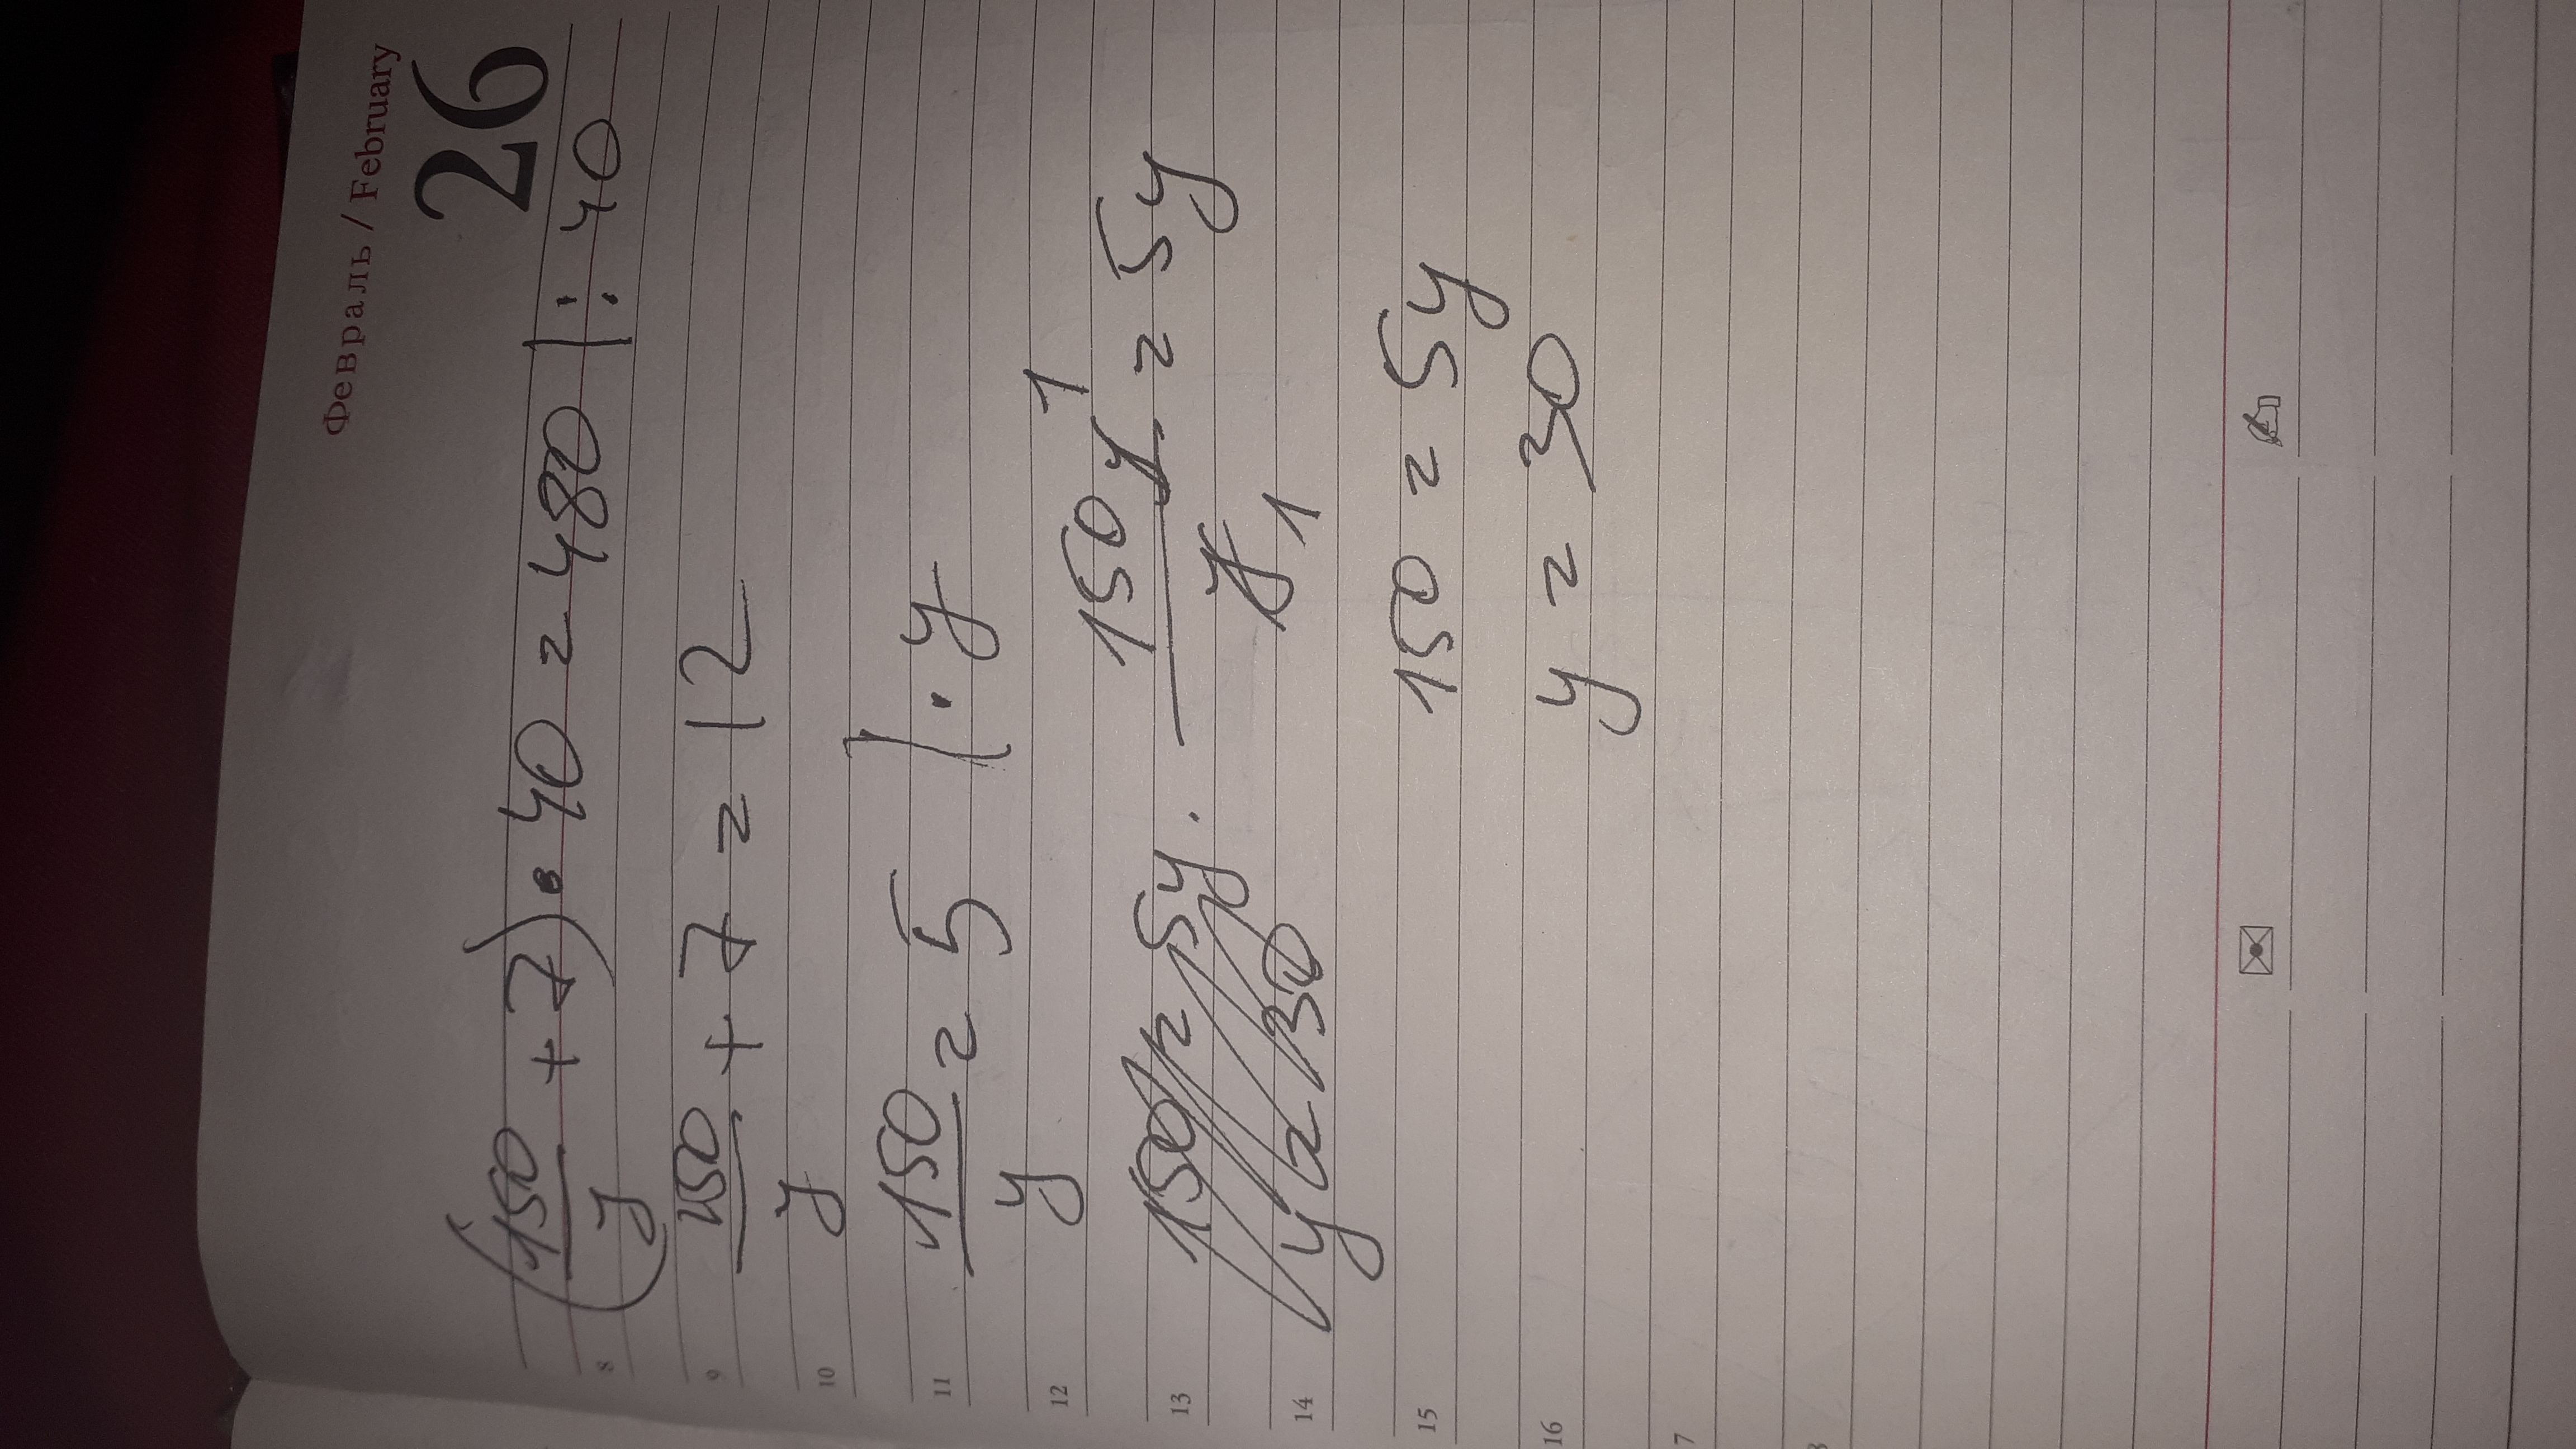 Февраль / February
26
(150/y + 7) · 40 = 480 | : 40
150/y + 7 = 12
150/y = 5 | · y
150 = 5y
150y/y = 5y
1
1
y = 30
150 = 5y
y = 30
8
9
10
11
12
13
14
15
16
7
8